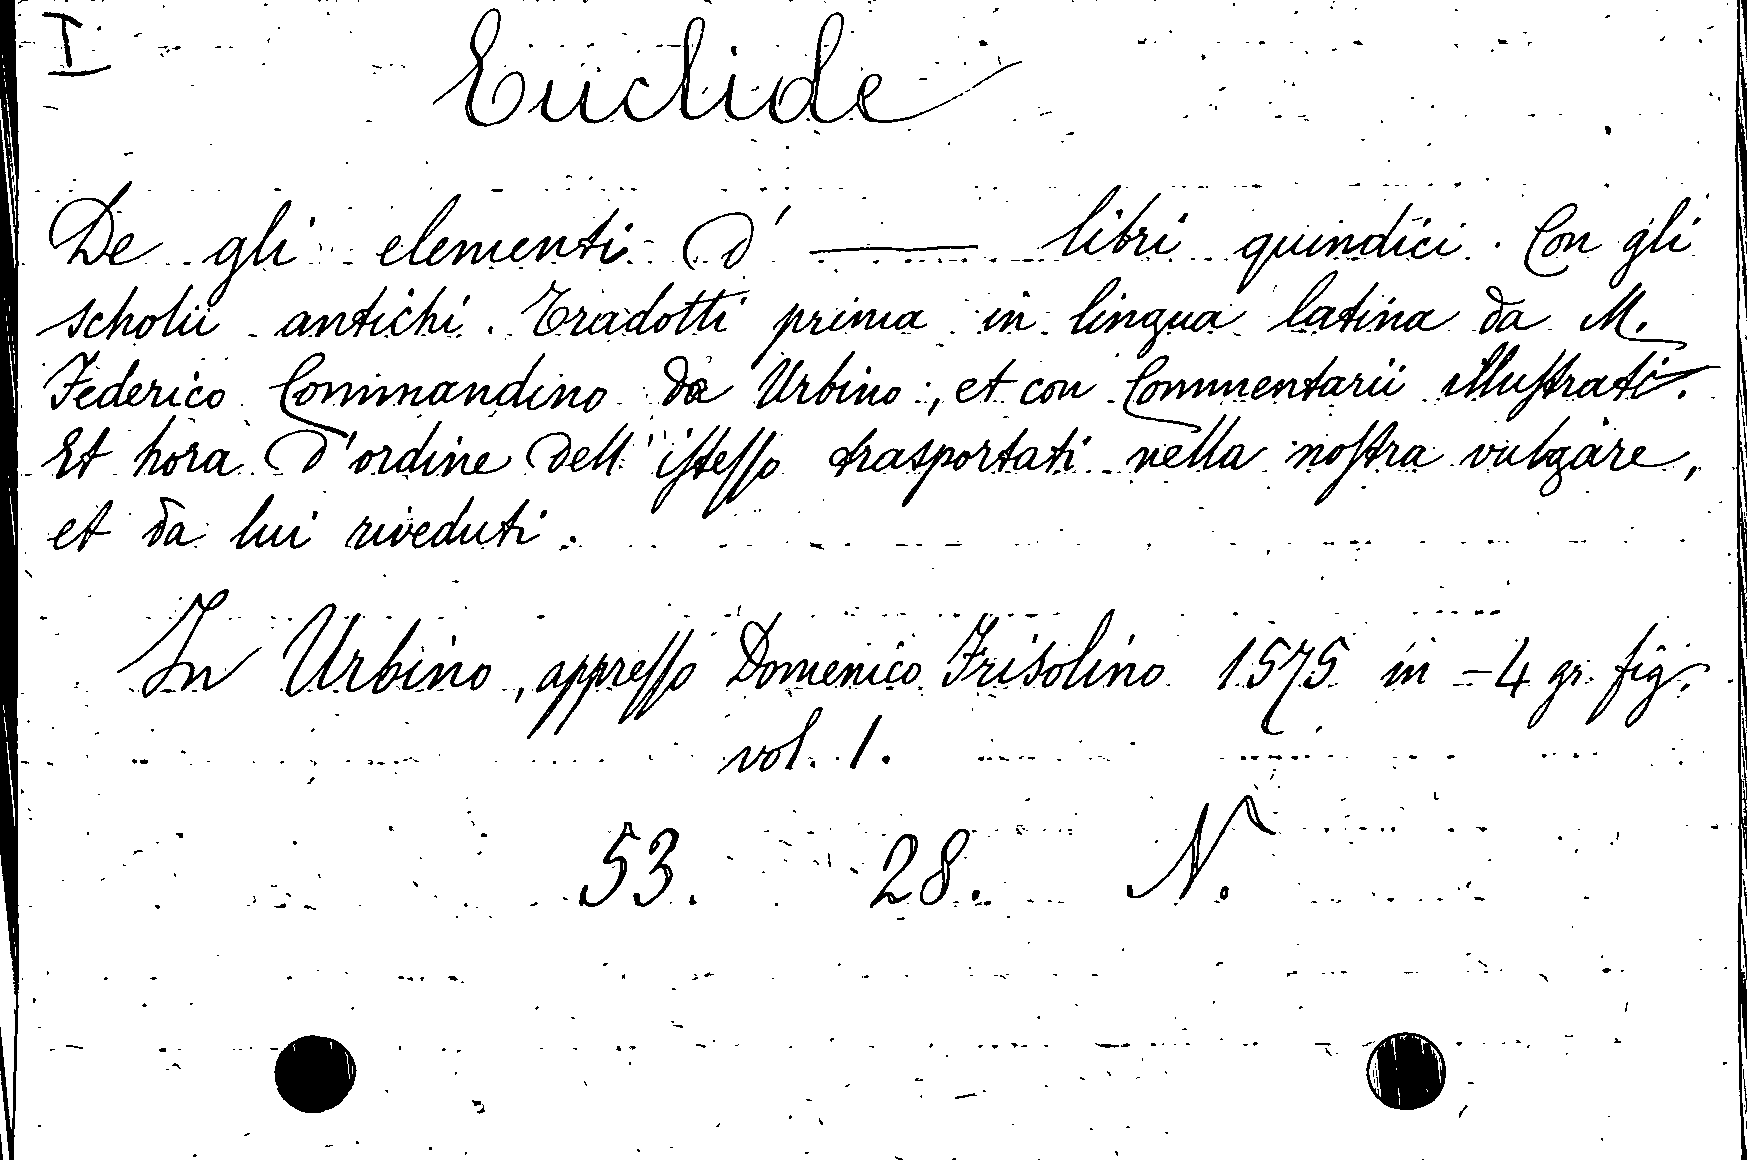 I
Euclide
De gli elementi d' ——— libri quindici. Con gli
scholii antichi. Tradotti prima in lingua latina da M.
Federico Commandino da Urbino; et con Commentarii illuſtrati.
Et hora d'ordine dell'iſteſſo trasportati nella noſtra vulgare,
et da lui riveduti.
In Urbino, appreſſo Domenico Frisolino 1575 in-4 gr. fig.
vol. 1.
53. 28. N.